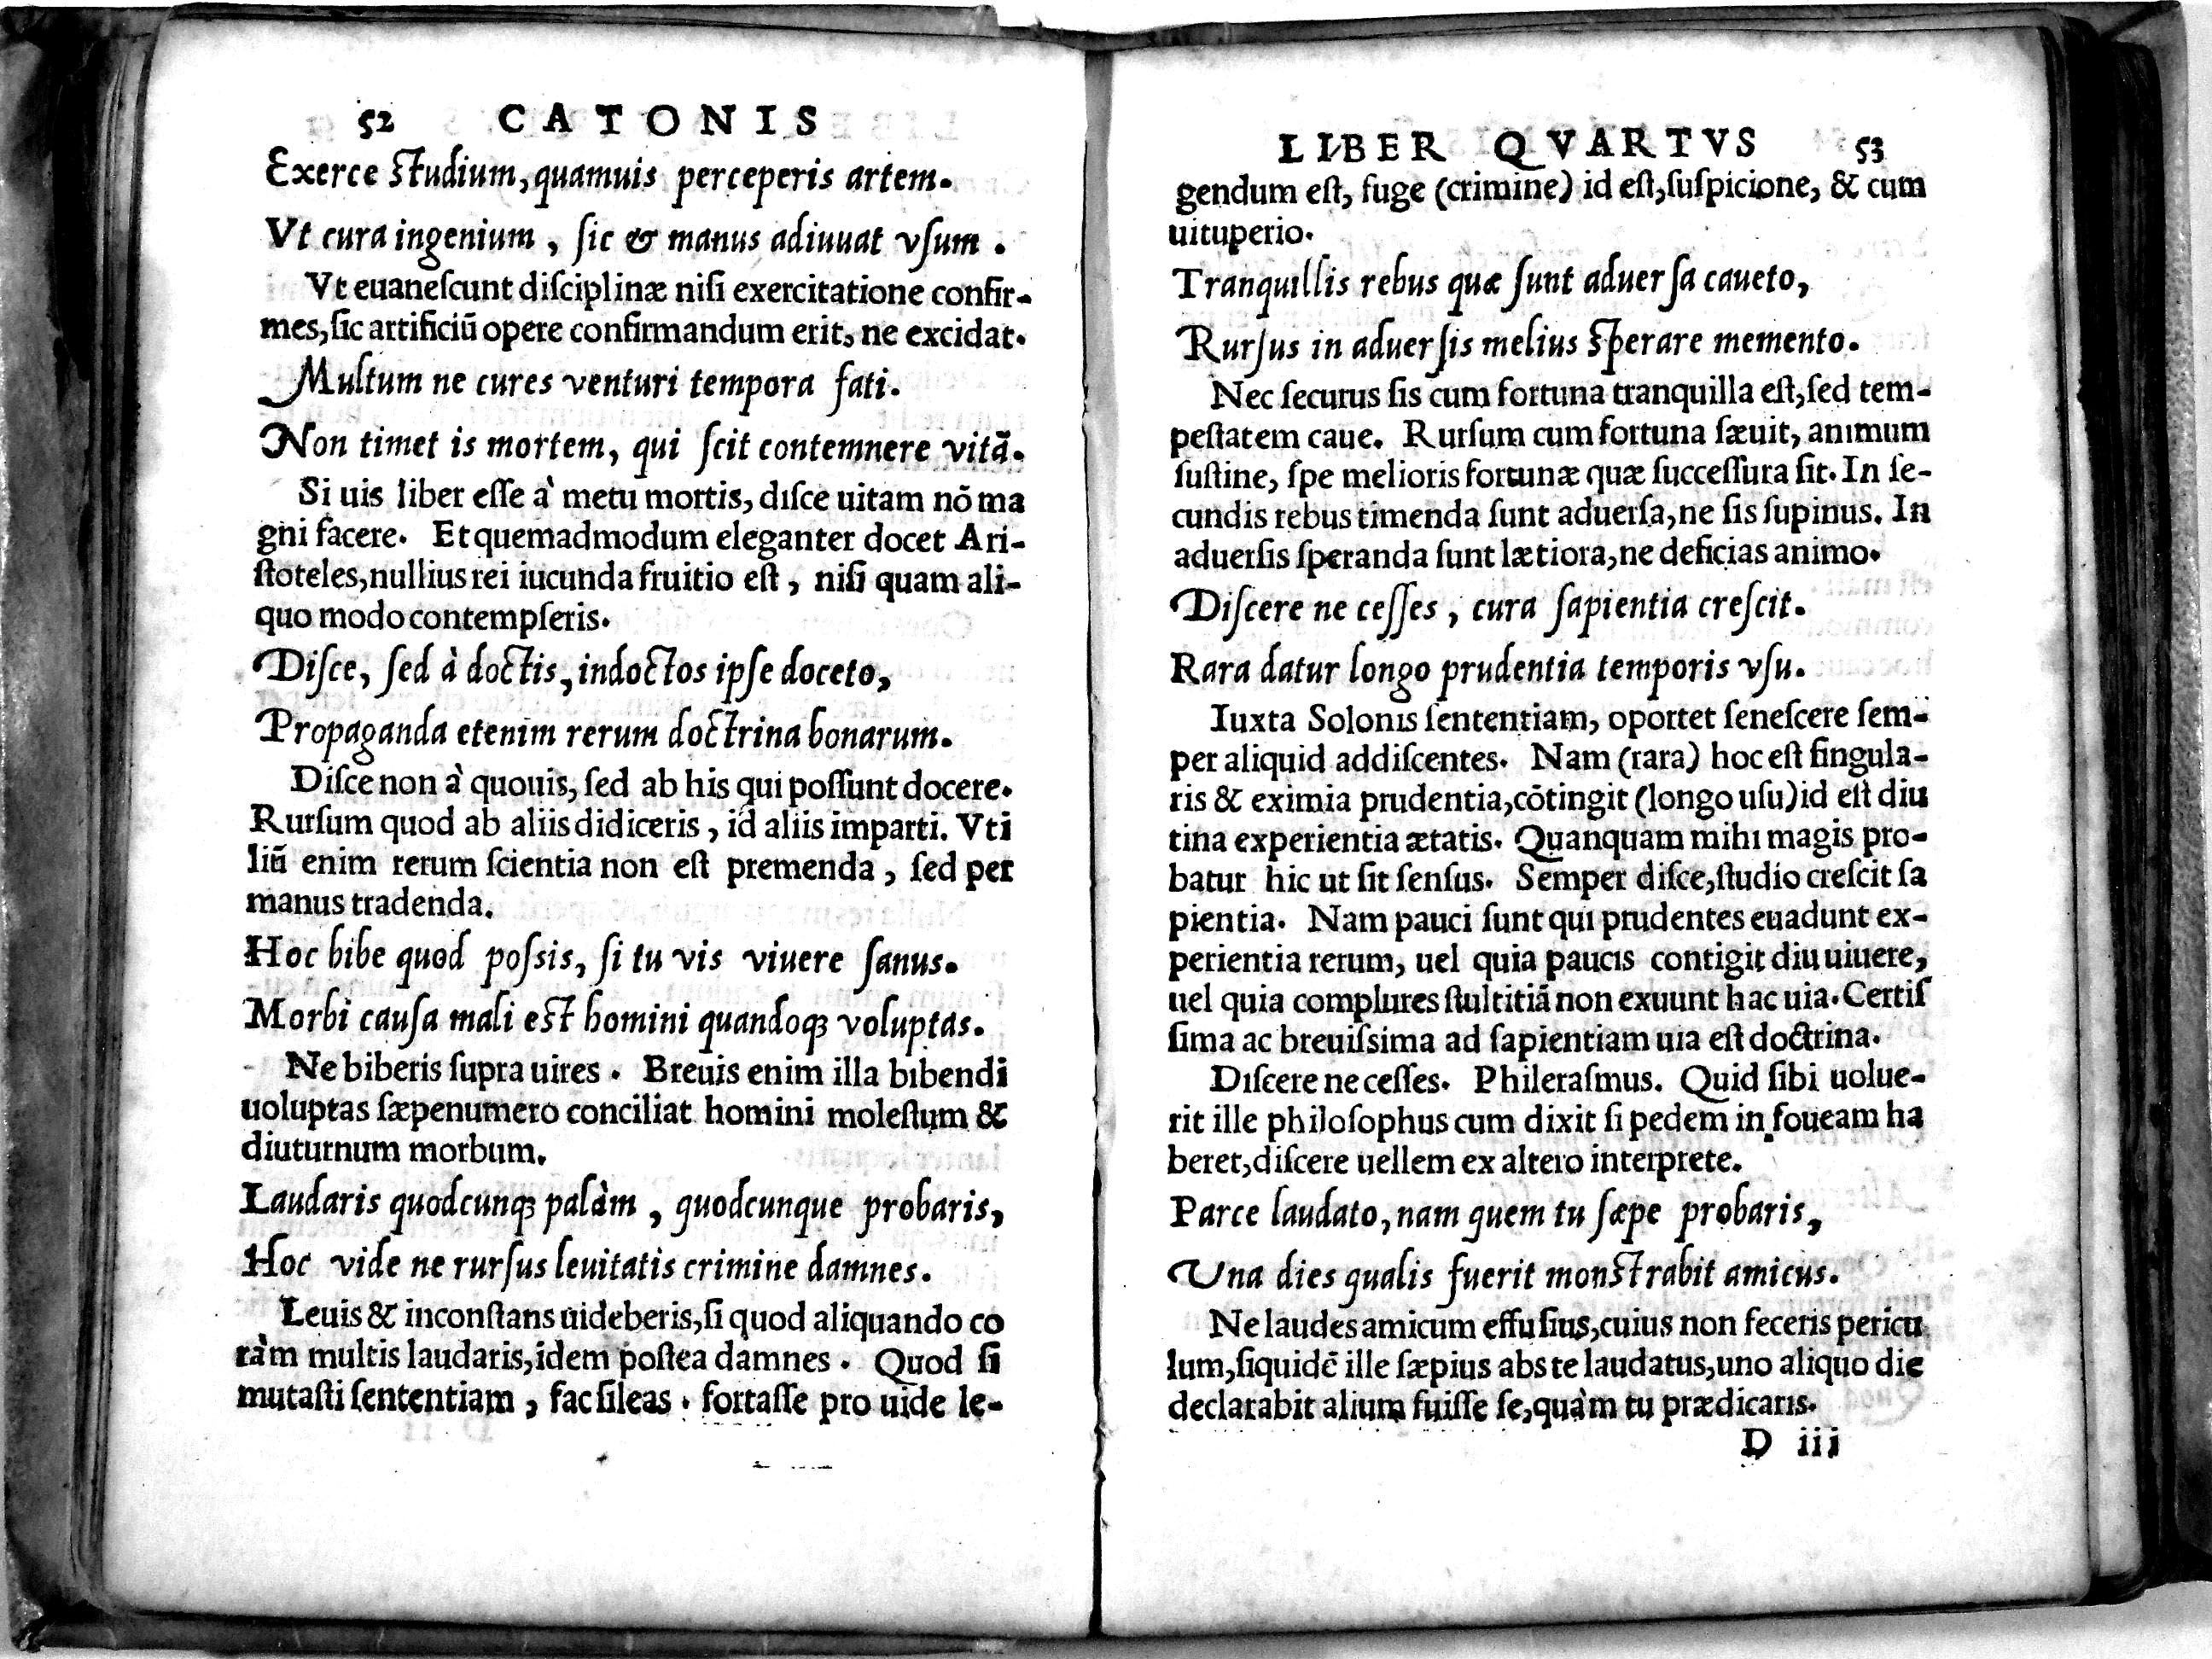 52 CATONIS
Exerce ſtudium, quamuis perceperis artem.
Vt cura ingenium, ſic & manus adiuuat vſum.
Vt euaneſcunt diſciplinæ niſi exercitatione confir-
mes, ſic artificiū opere confirmandum erit, ne excidat.
Multum ne cures venturi tempora fati.
Non timet is mortem, qui ſcit contemnere vitā.
Si uis liber eſſe à metu mortis, diſce uitam nō ma
gni facere. Et quemadmodum eleganter docet Ari-
ſtoteles, nullius rei iucunda fruitio eſt, niſi quam ali-
quo modo contempſeris.
Diſce, ſed à doctis, indoctos ipſe doceto,
Propaganda etenim rerum doctrina bonarum.
Diſce non à quouis, ſed ab his qui poſſunt docere.
Rurſum quod ab aliis didiceris, id aliis imparti. Vti
liū enim rerum ſcientia non eſt premenda, ſed per
manus tradenda.
Hoc bibe quod poſsis, ſi tu vis viuere ſanus.
Morbi cauſa mali eſt homini quandoqꝫ voluptas.
Ne biberis ſupra uires. Breuis enim illa bibendi
uoluptas ſæpenumero conciliat homini moleſtum &
diuturnum morbum.
Laudaris quodcunqꝫ palàm, quodcunque probaris,
Hoc vide ne rurſus leuitatis crimine damnes.
Leuis & inconſtans uideberis, ſi quod aliquando co
ràm multis laudaris, idem poſtea damnes. Quod ſi
mutaſti ſententiam, fac ſileas. fortaſſe pro uide le-
LIBER QVARTVS 53
gendum eſt, fuge (crimine) id eſt, ſuſpicione, & cum
uituperio.
Tranquillis rebus quæ ſunt aduerſa caueto,
Rurſus in aduerſis melius ſperare memento.
Nec ſecurus ſis cum fortuna tranquilla eſt, ſed tem-
peſtatem caue. Rurſum cum fortuna ſæuit, animum
ſuſtine, ſpe melioris fortunæ quæ ſucceſſura ſit. In ſe-
cundis rebus timenda ſunt aduerſa, ne ſis ſupinus. In
aduerſis ſperanda ſunt lætiora, ne deficias animo.
Diſcere ne ceſſes, cura ſapientia creſcit.
Rara datur longo prudentia temporis vſu.
Iuxta Solonis ſententiam, oportet ſeneſcere ſem-
per aliquid addiſcentes. Nam (rara) hoc eſt ſingula-
ris & eximia prudentia, cōtingit (longo uſu) id eſt diu
tina experientia ætatis. Quanquam mihi magis pro-
batur hic ut ſit ſenſus. Semper diſce, ſtudio creſcit ſa
pientia. Nam pauci ſunt qui prudentes euadunt ex-
perientia rerum, uel quia paucis contigit diu uiuere,
uel quia complures ſtultitiā non exuunt hac uia. Certiſ
ſima ac breuiſsima ad ſapientiam uia eſt doctrina.
Diſcere ne ceſſes. Phileraſmus. Quid ſibi uolue-
rit ille philoſophus cum dixit ſi pedem in foueam ha
beret, diſcere uellem ex altero interprete.
Parce laudato, nam quem tu ſæpe probaris,
Una dies qualis fuerit monſtrabit amicus.
Ne laudes amicum effuſius, cuius non feceris pericu
lum, ſiquidē ille ſæpius abs te laudatus, uno aliquo die
declarabit alium fuiſſe ſe, quàm tu prædicaris.
D iii